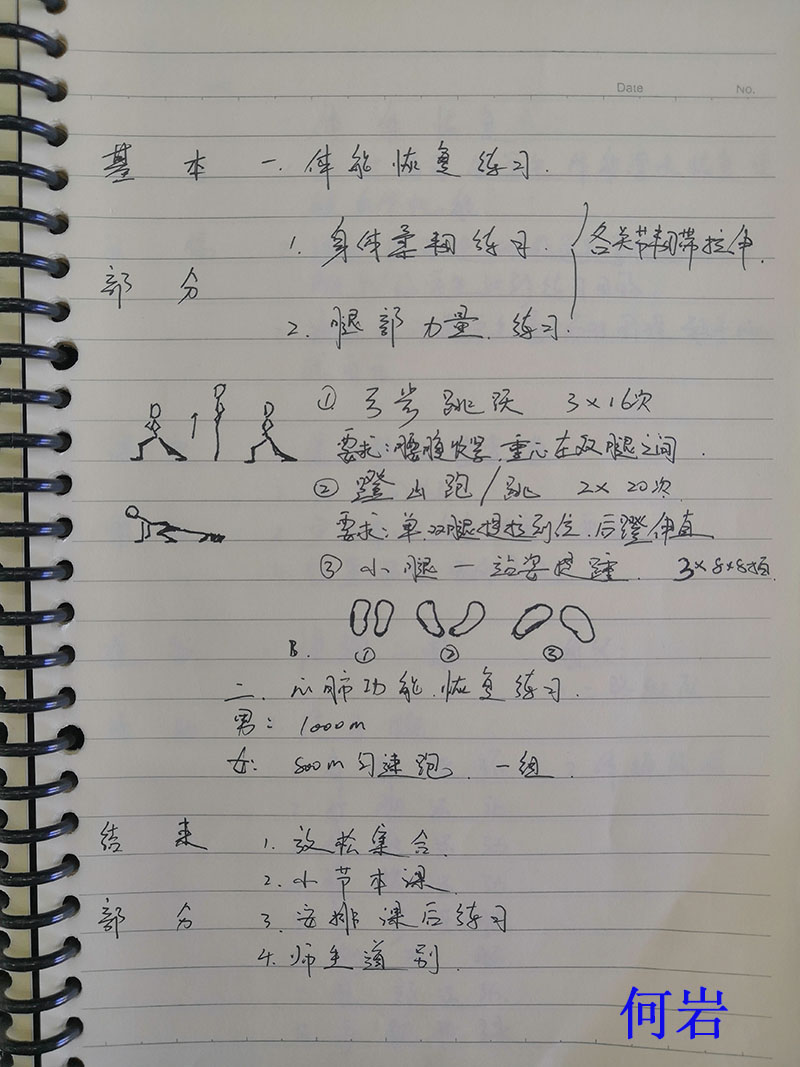 Date No.
基本 一、体能恢复练习.
1. 身体柔韧练习. 各关节韧带拉伸.
部分
2. 腿部力量练习.
① 弓步跳跃 3×16次
要求:腰腹收紧,重心在双腿之间.
② 蹬山跑/跳 2×20次
要求:单、双腿提拉到位,后蹬伸直
③ 小腿一站姿提踵. 3×8×8拍
B. ① ② ③
二、心肺功能恢复练习.
男: 1000m
女: 800m匀速跑 一组.
结束 1. 放松集合.
2. 小节本课.
部分 3. 安排课后练习
4. 师生道别.
何岩